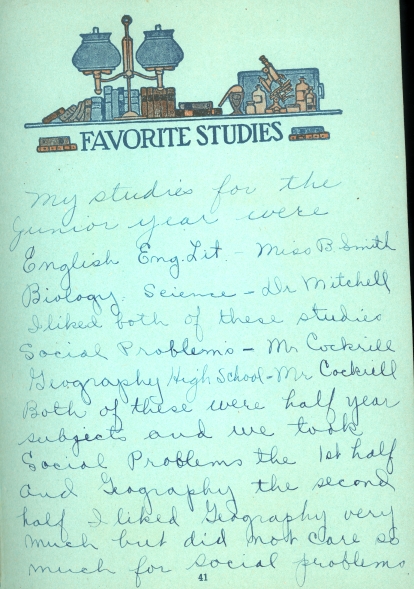 FAVORITE STUDIES
My studies for the
Junior year were
English Eng. Lit. - Miss B. Smith
Biology. Science - Dr Mitchell
I liked both of these studies
Social Problems - Mr Cockrill
Geography High School - Mr Cockrell
Both of these were half year
subjects and we took
Social Problems the 1st half
and Geography the second
half I liked Geography very
much but did not care so
much for social problems
41